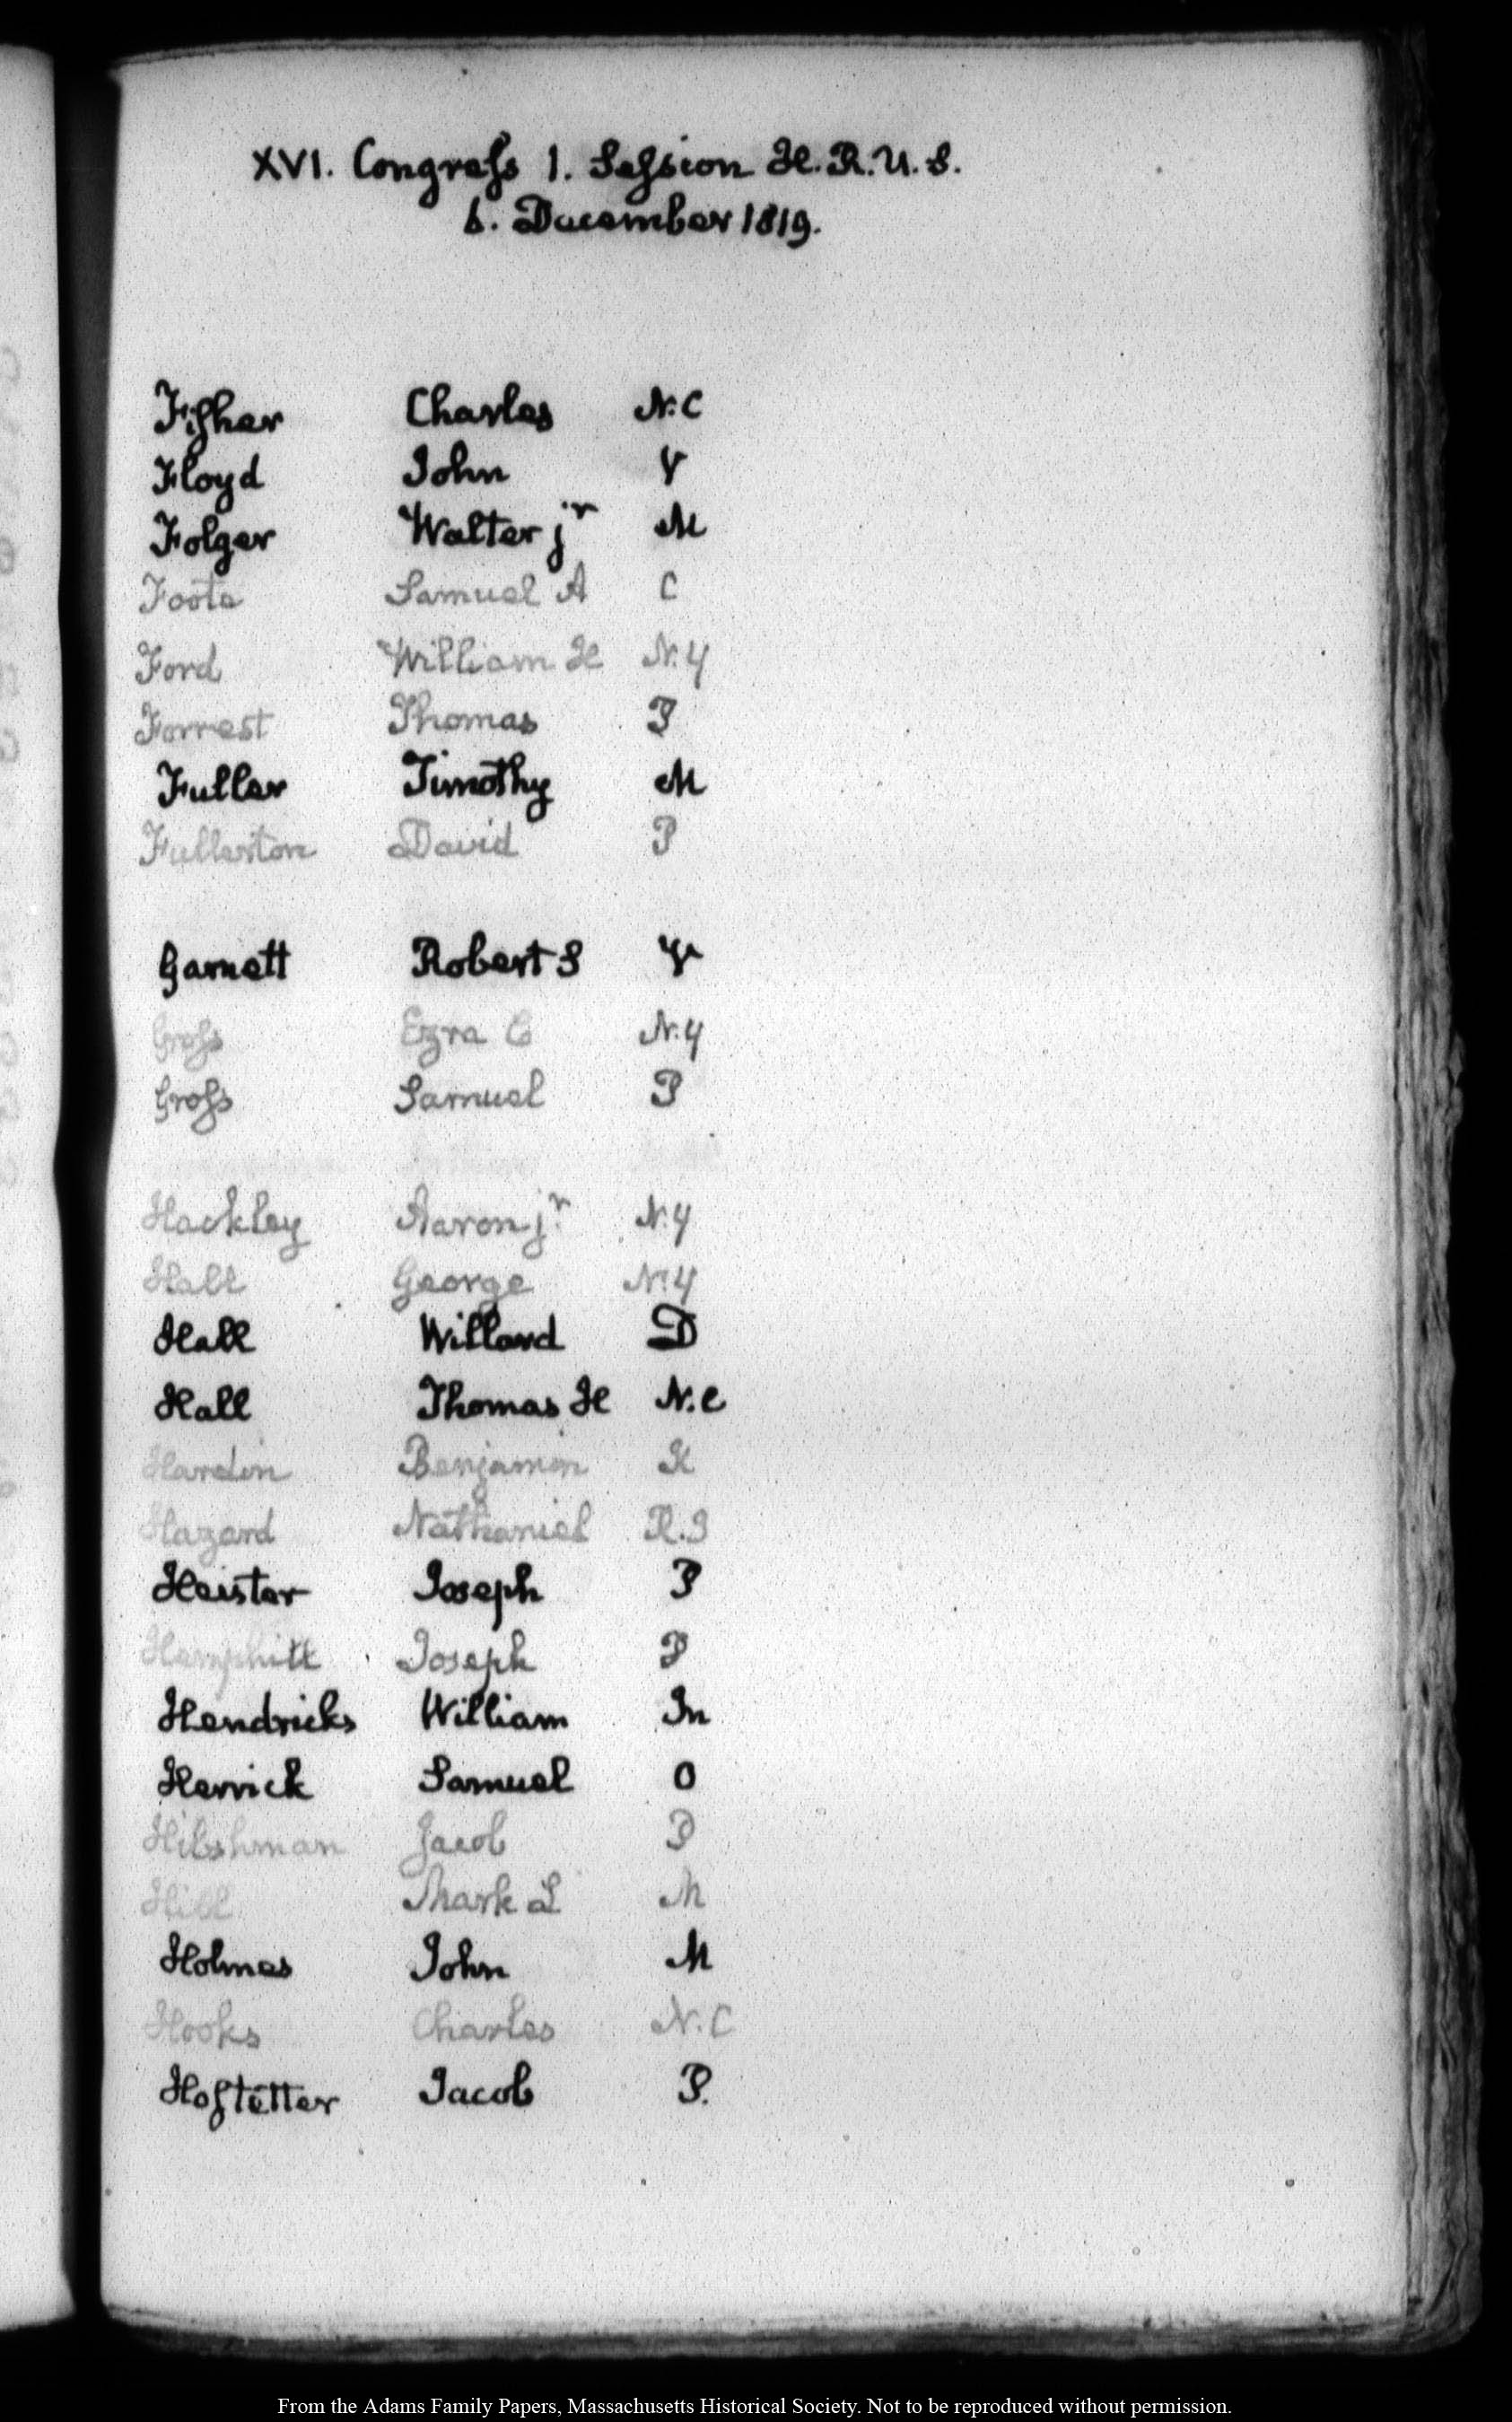 XVI. Congress 1. Session H.R.U.S.
6. December 1819.
Fisher Charles N.C
Floyd John V
Folger Walter jr M
Foote Samuel A C
Ford William H N.Y
Forrest Thomas P
Fuller Timothy M
Fullerton David P
Garnett Robert S V
Gross Ezra C N.Y
Gross Samuel P
Hackley Aaron jr N.Y
Hall George N.Y
Hall Willard D
Hall Thomas H N.C
Hardin Benjamin K
Hazard Nathaniel R.I
Heister Joseph P
Hemphill Joseph P
Hendricks William In
Herrick Samuel O
Hibshman Jacob P
Hill Mark L M
Holmes John M
Hooks Charles N.C
Hostetter Jacob P.
From the Adams Family Papers, Massachusetts Historical Society. Not to be reproduced without permission.